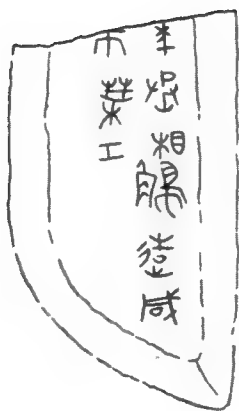 年丞相觸造咸
帀葉工